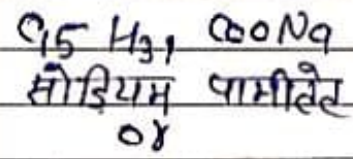 C15 H31 COONa
सोडियम पामीटेट
08